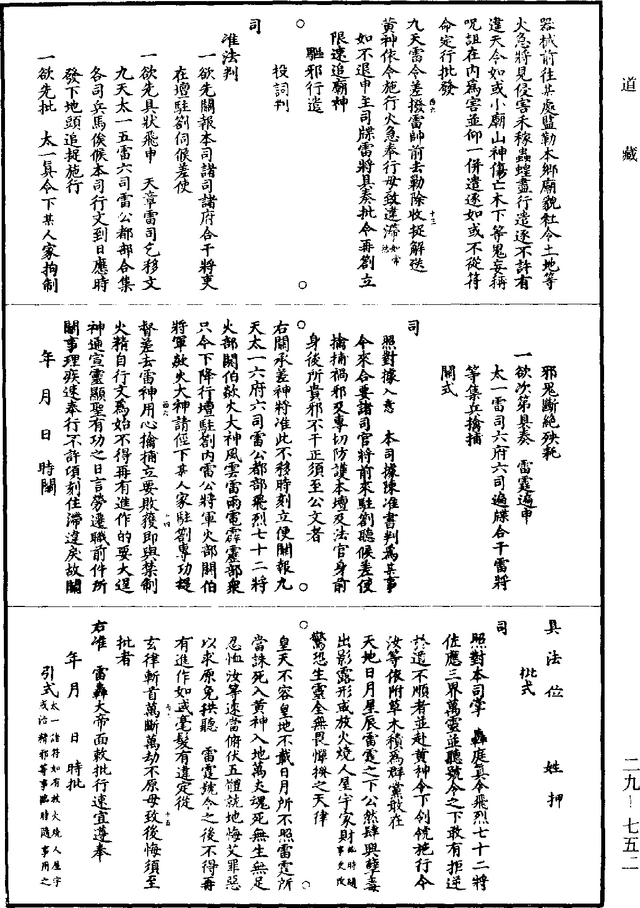 道藏
器械前往某處監勒本鄉廟貌社令土地等
火急將見侵害禾稼蟲蝗盡行遣逐不許有
違天令如或小廟山神傷亡木下等鬼妄稱
呪詛在內為害並仰一併遣逐如或不從符
命定行批發
九天雷令差撥雷帥前去勒除收捉解送
黃神依令施行火急奉行毋致違滯如常法
如不退申主司牒雷將具奏批令再劄立
限速追廟神
驅邪行遣
投詞判
司
准法判
一欲先關報本司諸司諸府合干將吏
在壇駐劄伺候差使
一欲先具狀飛申　天章雷司乞移文
九天太一五雷六司雷公都部合集
各司兵馬俟候本司行文到日應時
發下地頭追捉施行
一欲先批　太一真令下某人家拘制
邪鬼斷絕殃耗
一欲次第具奏　雷霆遍申
太一雷司六府六司遍牒合干雷將
等集兵擒捕
關式
司
照對據入意　本司據陳准書判為某事
今來合要諸司官將前來駐劄聽候差使
擒捕禍邪及專切防護本壇及法官身前
身後所貴邪不干正須至公文者
右關承差神將准此不移時刻立便關報九
天太一六府六司雷公都部飛烈七十二將
火部閼伯歘火大神風雲雷雨電霹靂部眾
只今下降行壇駐劄內雷公將軍火部閼伯
將軍歘火大神請徑下某人家駐劄專功提
督差去雷神用心擒捕立要敗獲即與禁制
火精自行文為始不得再有進作的要大逞
神通宣靈顯聖有功之日言勞遷職前件所
關事理疾速奉行不許頃刻住滯違戾故關
年　月　日　時關
具法位　　姓　押
批式
司
照對本司掌　轟庭真令飛烈七十二將
佐應三界萬靈並聽號令之下敢有拒逆
於道不順者並赴黃神令下剉銃施行今
汝等依附草木積為群黨敢在
天地日月星辰雷霆之下公然肆興孽毒
出影露形或放火燒人屋宇家財臨時隨事更改
驚恐生靈全無畏懼揆之天律
皇天不容皇地不載日月所不照雷霆所
當誅死入黃神入地萬炎魂死無生無足
忍恤汝等速當俯伏五體就地悔艾罪惡
以求原免秩聽　雷霆號令之後不得再
有進作如或毫髮有違定從
玄律斬首萬斷萬劫不原毋致後悔須至
批者
右准　雷轟大帝面敕批行速宜遵奉
年　月　日　時批
引式太一諸符如有放火燒人屋宇或治精邪等事臨時隨事用之
二九—七五二